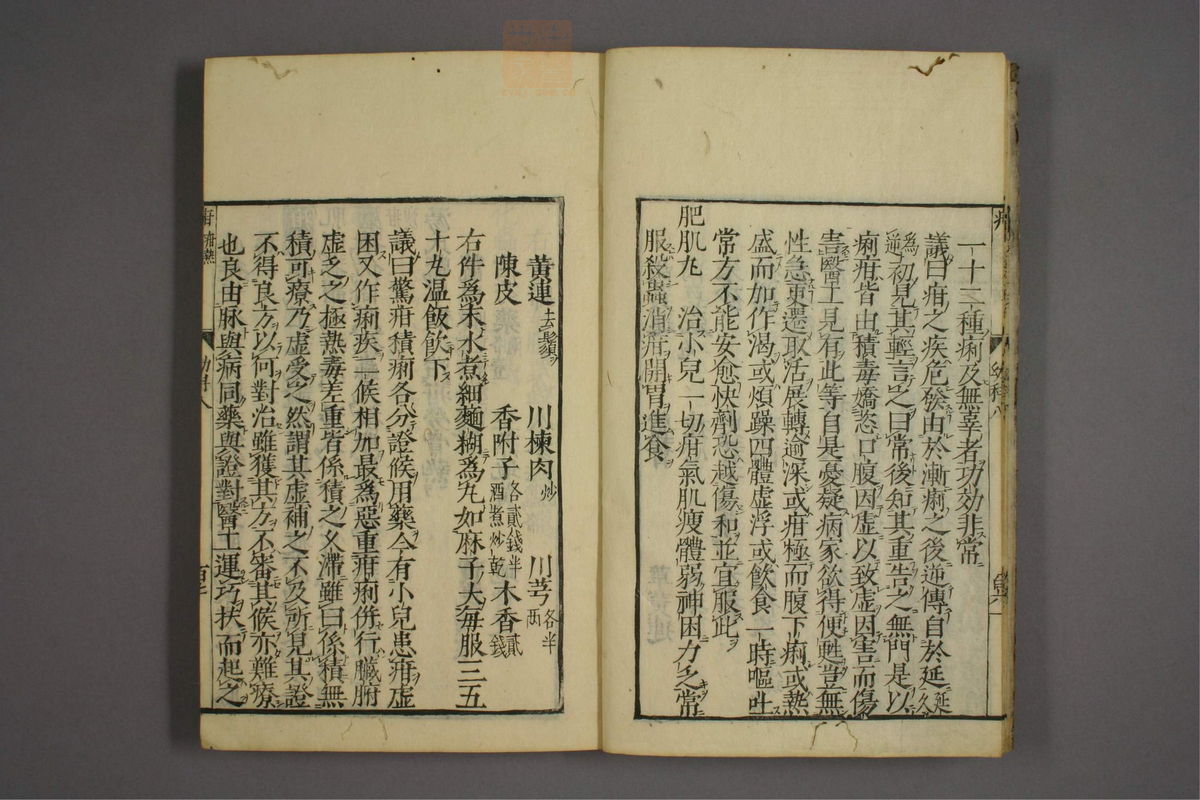 一十二種痢及無辜者功効非常
議曰疳之疾危篤由於漸痢之後遞傳自於延延久
為逆初見其輕言之曰常後知其重告之無門是以
痢疳皆由積毒嬌恣口腹因虛以致虛因害而傷
害醫工見有此等自是憂疑病家欲得便甦豈無
性急更遷取活展轉逾深或疳極而腹下痢或熱
盛而加作渴或煩躁四體虛浮或飲食一時嘔吐
常方不能安愈快劑恐越傷和並宜服此
肥肌丸 治小兒一切疳氣肌瘦體弱神困力乏常
服殺蟲消疳開胃進食
黃連去鬚 川楝肉炒 川芎各半兩
陳皮 香附子各貳錢半酒煮炒乾 木香貳錢
右件為末水煮細麵糊為丸如麻子大每服三五
十丸溫飯飲下
議曰驚疳積痢各分證候用藥今有小兒患疳虛
困又作痢疾二候相加最為惡重疳痢併行臟腑
虛乏之極熱毒差重皆係積之久滯雖曰係積無
積可療乃虛受之然謂其虛補之不及所見其證
不得良方以何對治雖獲其方不審其候亦難療
也良由脉與病同藥與證對醫工運巧扶而起之